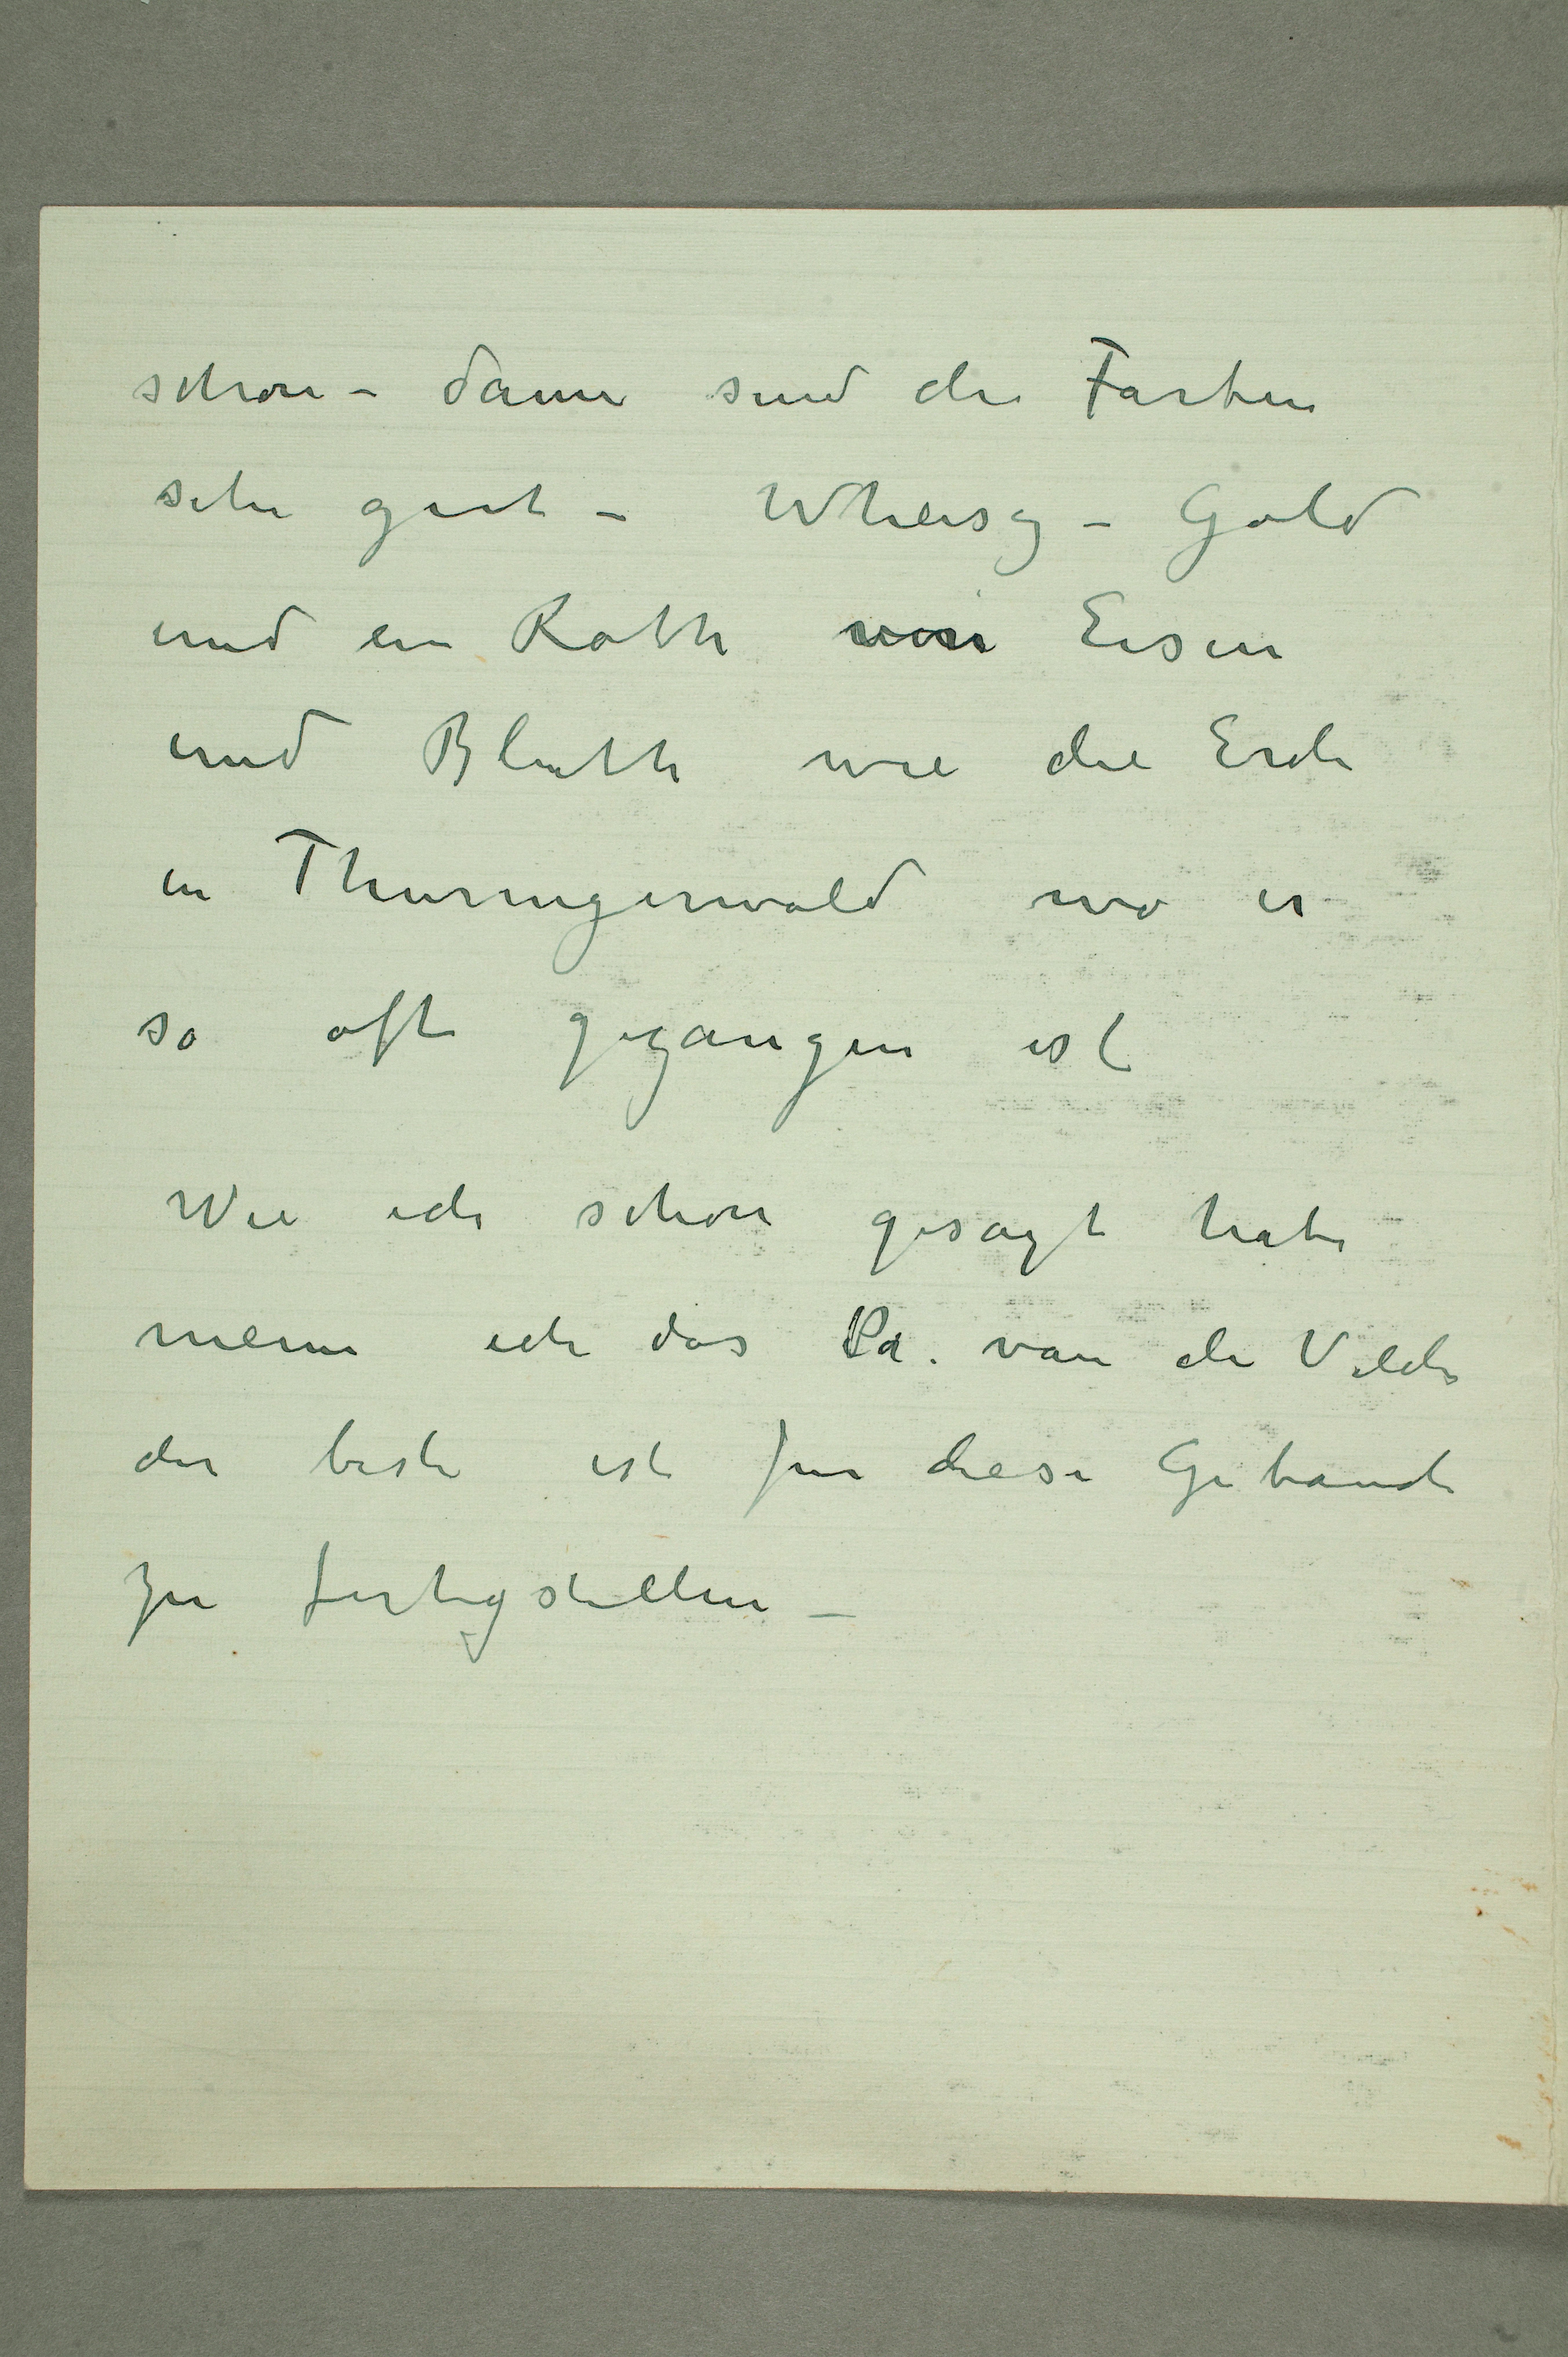 schon – dann sind die Farben
sehr gut – Wheisz – Gold
und ein Roth von Eisen
und Bluth wie die Erde
in Thuringerwald wo er
so oft gegangen ist
Wie ich schon gesagt habe
meine ich das van de Velde
der beste ist fur diese Gebaude
zu fertigstellen –